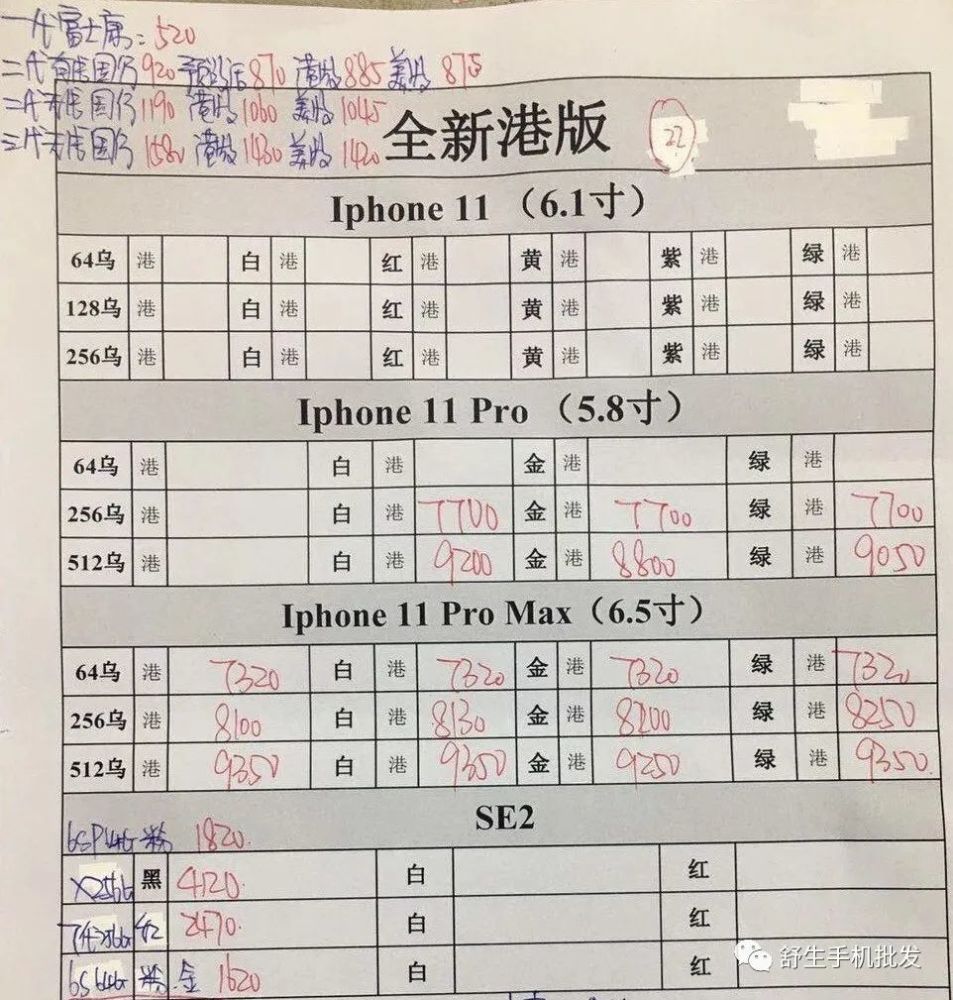 一代富士康:520
二代有线国行920 预激活870 港版885 美版875
二代无线国行1190 港版1060 美版1045
三代无线国行1580 港版1430 美版1420
全新港版 22
Iphone 11 （6.1寸）
64乌 港 白 港 红 港 黄 港 紫 港 绿 港
128乌 港 白 港 红 港 黄 港 紫 港 绿 港
256乌 港 白 港 红 港 黄 港 紫 港 绿 港
Iphone 11 Pro （5.8寸）
64乌 港 白 港 金 港 绿 港
256乌 港 白 港 7700 金 港 7700 绿 港 7700
512乌 港 白 港 9200 金 港 8800 绿 港 9050
Iphone 11 Pro Max（6.5寸）
64乌 港 7320 白 港 7320 金 港 7320 绿 港 7320
256乌 港 8100 白 港 8130 金 港 8200 绿 港 8250
512乌 港 9350 白 港 9350 金 港 9250 绿 港 9350.
SE2
6SP64G 粉 1820.
X256G 黑 4120. 白 红
红 2470. 白 红
6S64G 粉 金 1620 白 红
舒生手机批发